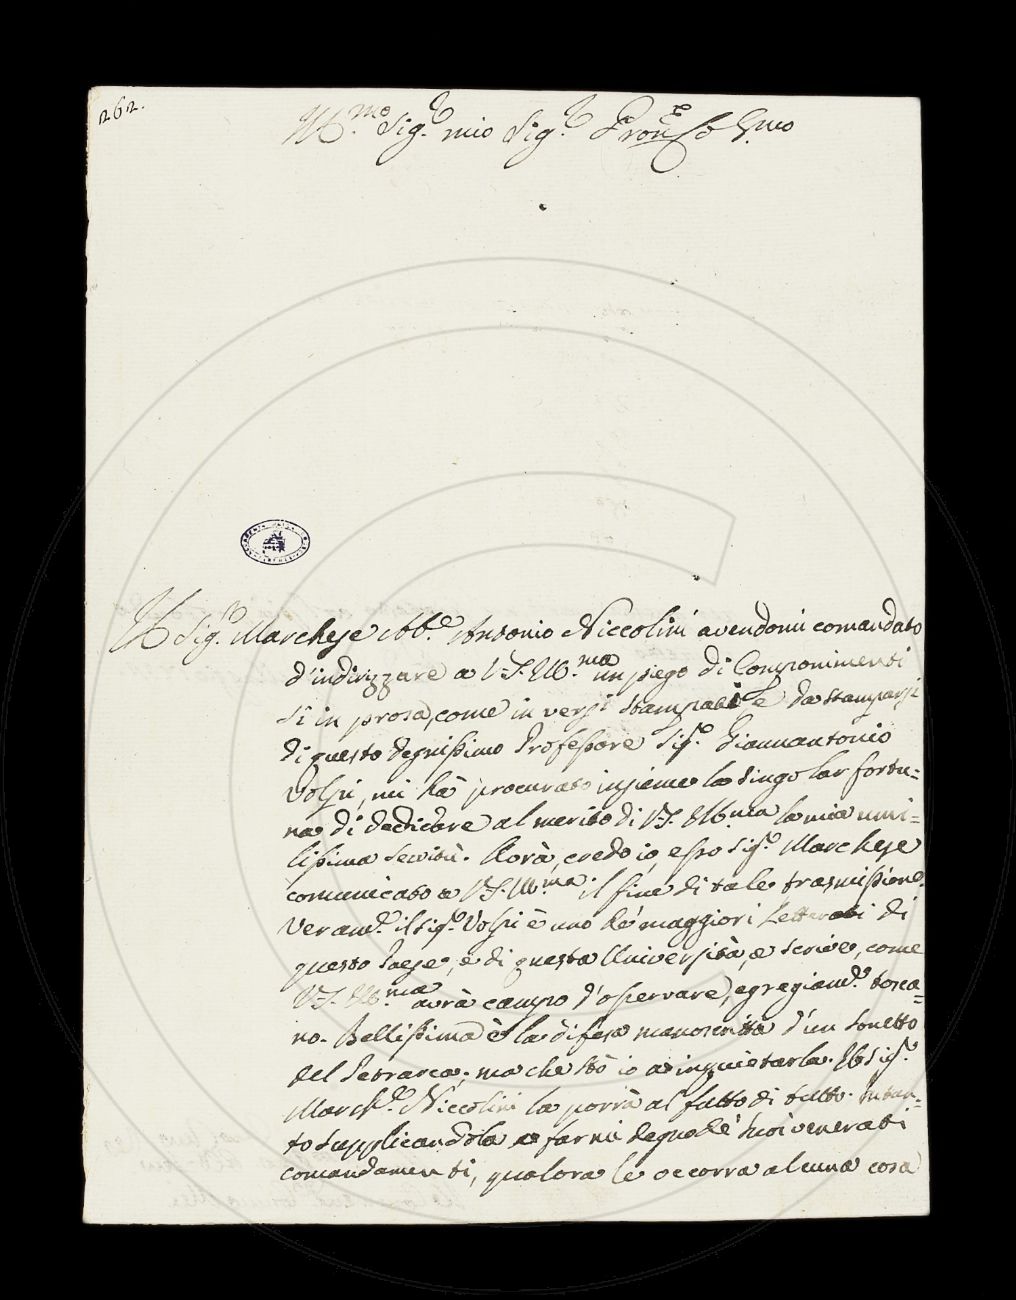 262.
Ill.mo Sig.r mio Sig.r Pron Col.mo
Il Sig.r Marchese Abb.e Antonio Niccolini avendomi comandato
d'indirizzare a V.S. Ill.ma un piego di Componimenti
sì in prosa, come in versi stampati, e da stamparsi
di questo degnissimo Professore Sig.r Giannantonio
Volpi, mi hà procurato insieme la singolar fortu=
na di dedicare al merito di V.S. Ill.ma la mia umi=
lissima servitù. Avrà, credo io, esso Sig.r Marchese
comunicato a V.S. Ill.ma il fine di tale trasmissione.
Veram.e il Sig.r Volpi è uno de' maggiori Letterati di
questo Paese, e di questa Università, e scrive, come
V.S. Ill.ma avrà campo d'osservare, egregiam.e tosca=
no. Bellissima è la difesa manoscritta d'un Sonetto
del Petrarca; ma che stò io a inquietarla. Il Sig.r
March.e Niccolini la porrà al fatto di tutto. Intan=
to supplicandola a farmi degno de' suoi venerati
comandamenti, qualora le occorra alcuna cosa